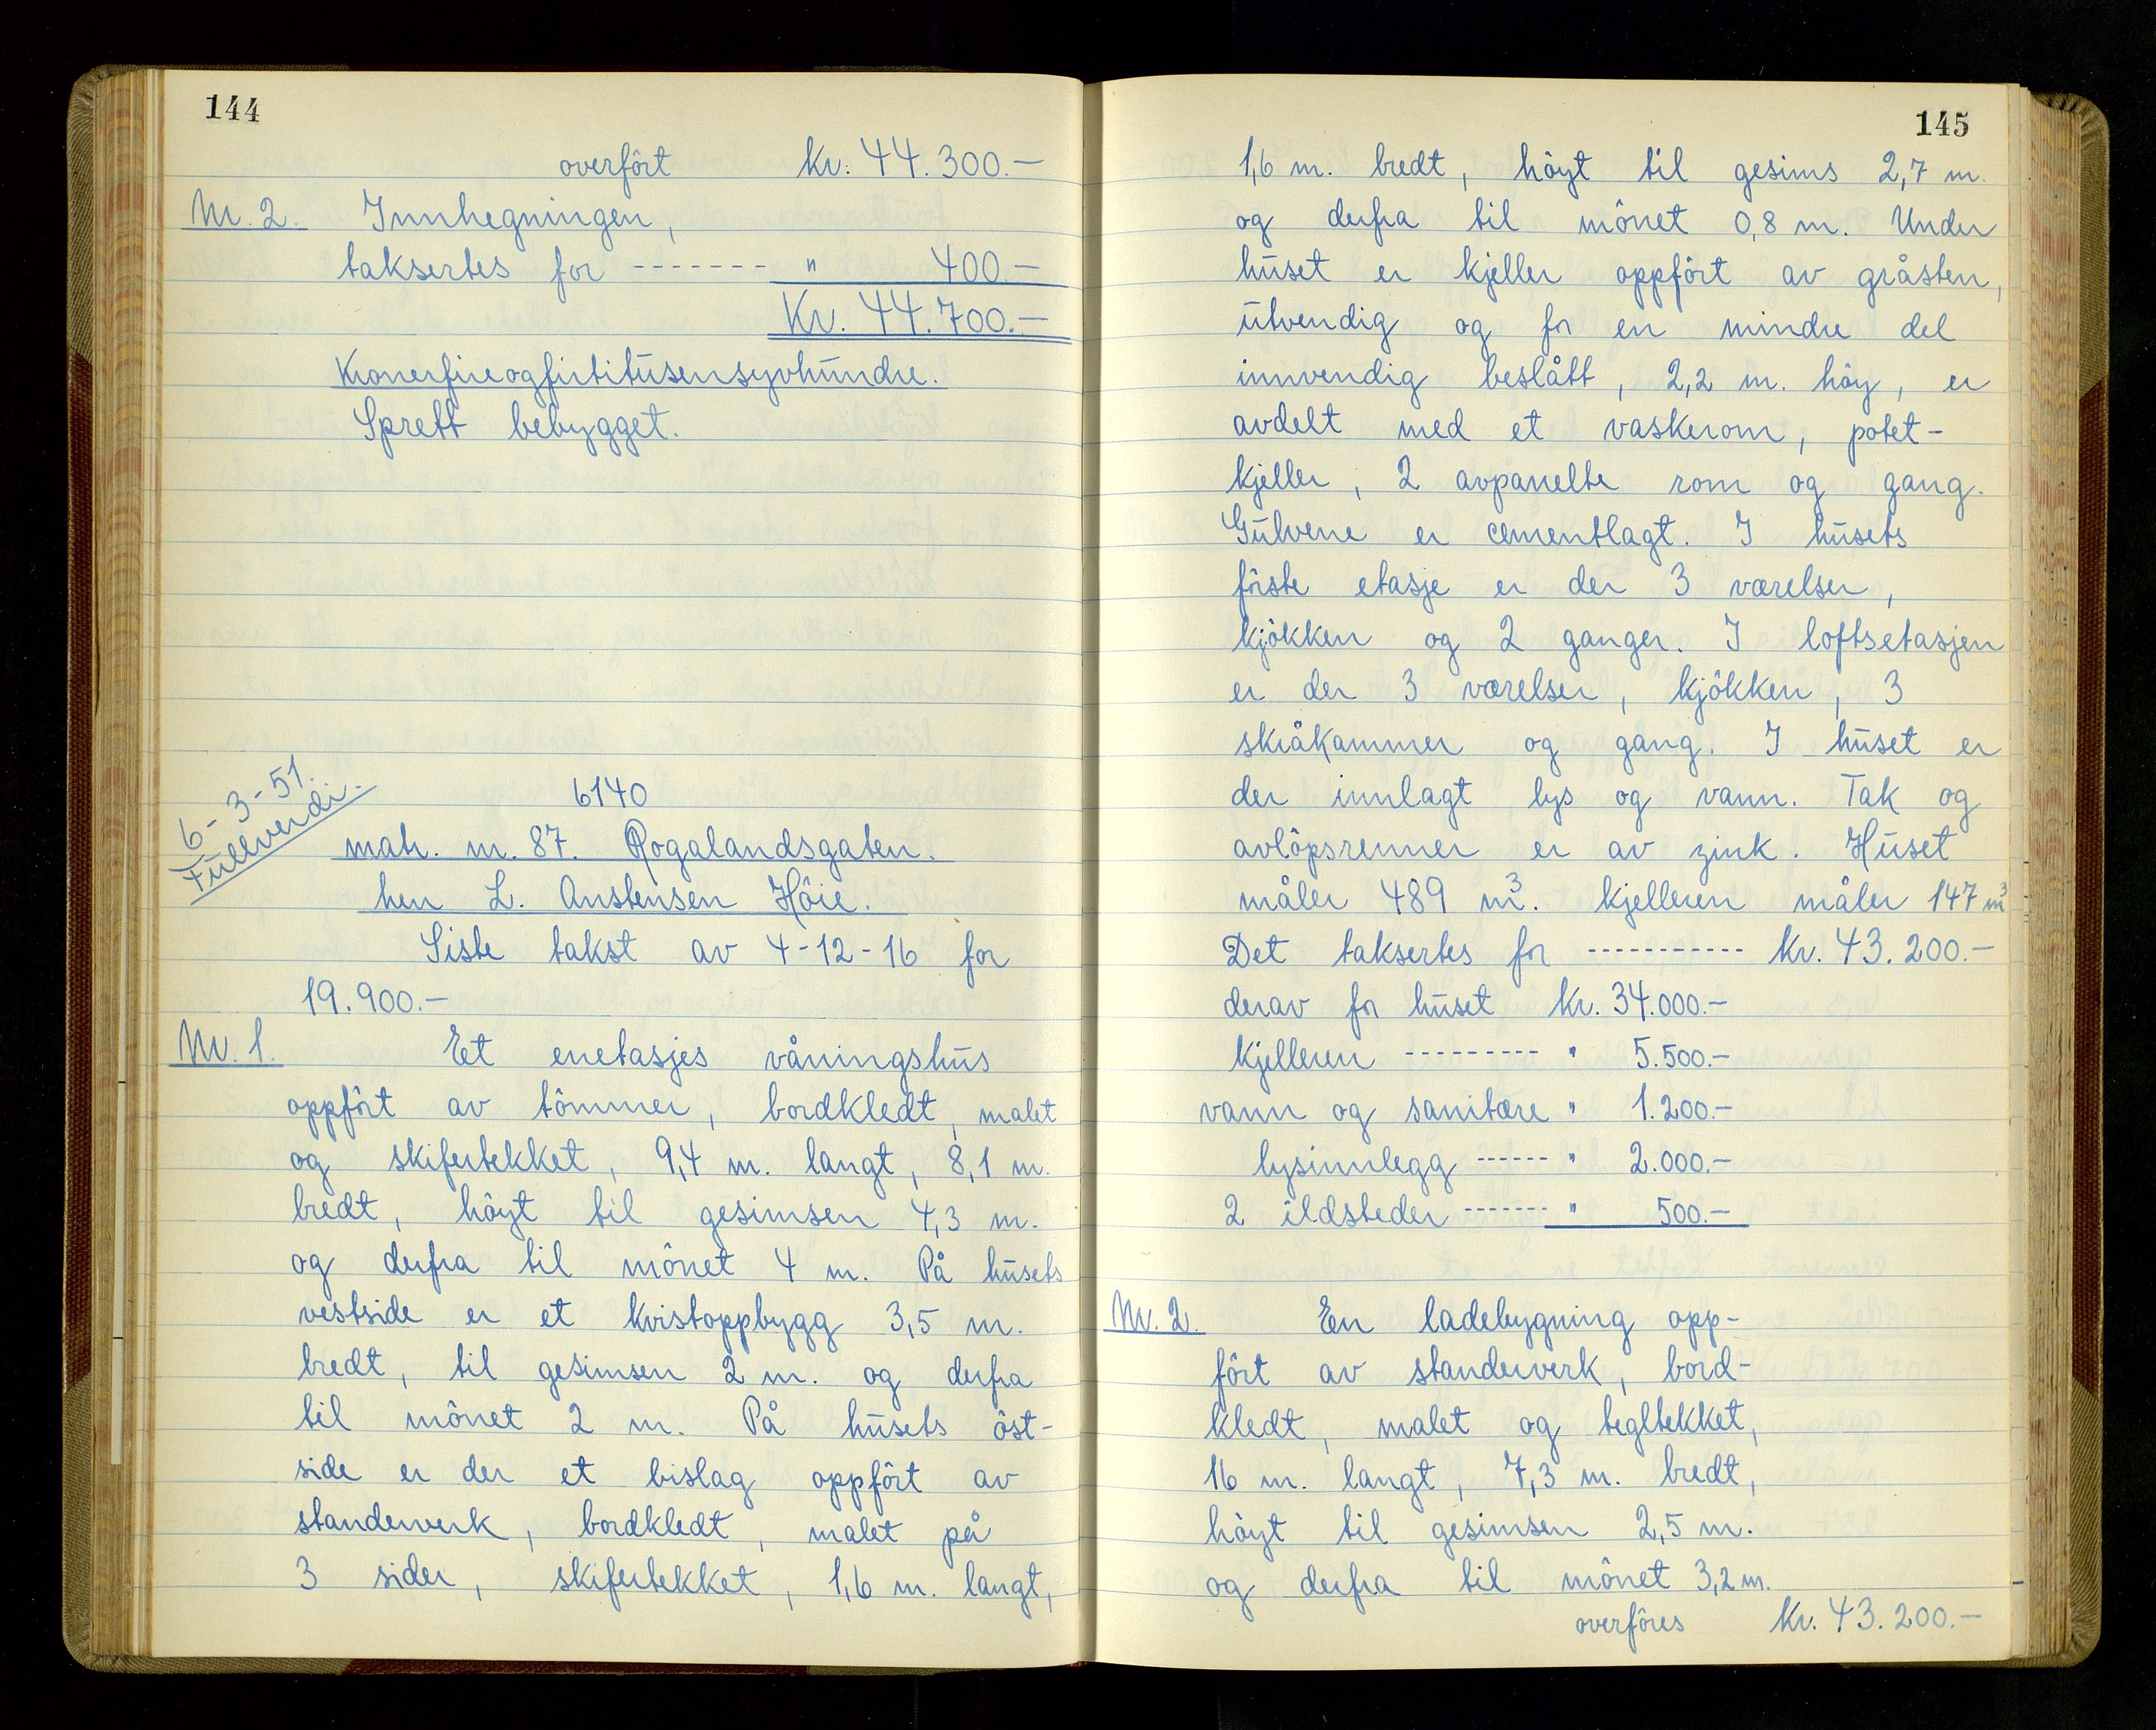 144
overfört Kr: 44.300.-
Nr. 2. Innhegningen,
taksertes for ------- " 400.-
Kr. 44.700.-
Kronerfireogfirtitusensyvhundre.
Sprett bebygget.
6-3-51.
Fullverdi.
6140
matr. nr. 87. Rogalandsgaten.
herr L. Anstensen Höie.
Siste takst av 4-12-16 for
19.900.-
Nr. 1. Eet enetasjes våningshus
oppfört av tömmer, bordkledt, malet
og skifertekket, 9,4 m. langt, 8,1 m.
bredt, höyt til gesimsen 4,3 m.
og derfra til mönet 4 m. På husets
vestside er et kvistoppbygg 3,5 m.
bredt, til gesimsen 2 m. og derfra
til mönet 2 m. På husets öst-
side er der et bislag oppfört av
standerverk, bordkledt, malet på
3 sider, skifertekket, 1,6 m. langt,
145
1,6 m. bredt, höyt til gesims 2,7 m.
og derfra til mönet 0,8 m. Under
huset er kjeller oppfört av gråsten,
utvendig og for en mindre del
innvendig beslått, 2,2 m. höy, er
avdelt med et vaskerom, potet-
kjeller, 2 avpanelte rom og gang.
Gulvene er cementlagt. I husets
förste etasje er der 3 værelser,
kjökken og 2 ganger. I loftsetasjen
er der 3 værelser, kjökken, 3
skråkammer og gang. I huset er
der innlagt lys og vann. Tak og
avlöpsrenner er av zink. Huset
måler 489 m³. kjelleren måler 147 m³
Det taksertes for ----------- Kr. 43.200.-
derav for huset Kr. 34.000.-
kjelleren --------- " 5.500.-
vann og sanitære " 1.200.-
lysinnlegg ------ " 2.000.-
2 ildsteder ------- " 500.-
Nr. 2. En ladebygning opp-
fört av standerverk, bord-
kledt, malet og tegltekket,
16 m. langt, 7,3 m. bredt,
höyt til gesimsen 2,5 m.
og derfra til mönet 3,2 m.
overföres Kr. 43.200.-